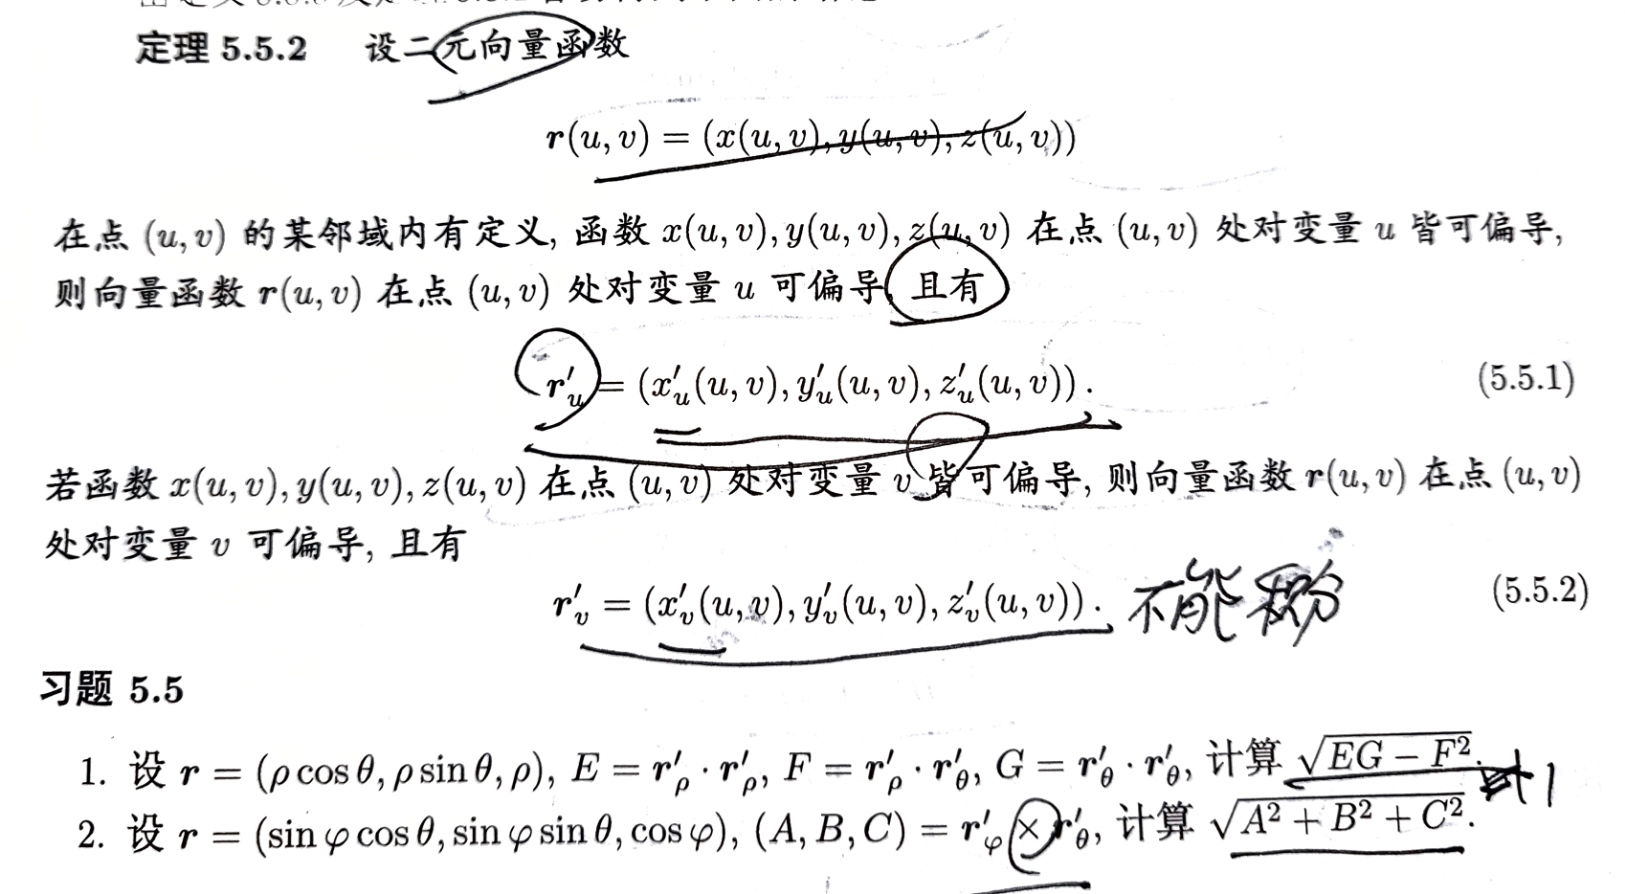 定理 5.5.2 设二元向量函数
r(u, v) = (x(u, v), y(u, v), z(u, v))
在点 (u, v) 的某邻域内有定义, 函数 x(u, v), y(u, v), z(u, v) 在点 (u, v) 处对变量 u 皆可偏导,
则向量函数 r(u, v) 在点 (u, v) 处对变量 u 可偏导, 且有
r′ᵤ = (x′ᵤ(u, v), y′ᵤ(u, v), z′ᵤ(u, v)). (5.5.1)
若函数 x(u, v), y(u, v), z(u, v) 在点 (u, v) 处对变量 v 皆可偏导, 则向量函数 r(u, v) 在点 (u, v)
处对变量 v 可偏导, 且有
r′ᵥ = (x′ᵥ(u, v), y′ᵥ(u, v), z′ᵥ(u, v)). 不能 (5.5.2)
习题 5.5
1. 设 r = (ρ cos θ, ρ sin θ, ρ), E = r′ᵨ · r′ᵨ, F = r′ᵨ · r′_θ, G = r′_θ · r′_θ, 计算 √(EG − F²).
2. 设 r = (sin φ cos θ, sin φ sin θ, cos φ), (A, B, C) = r′ᵩ × r′_θ, 计算 √(A² + B² + C²).